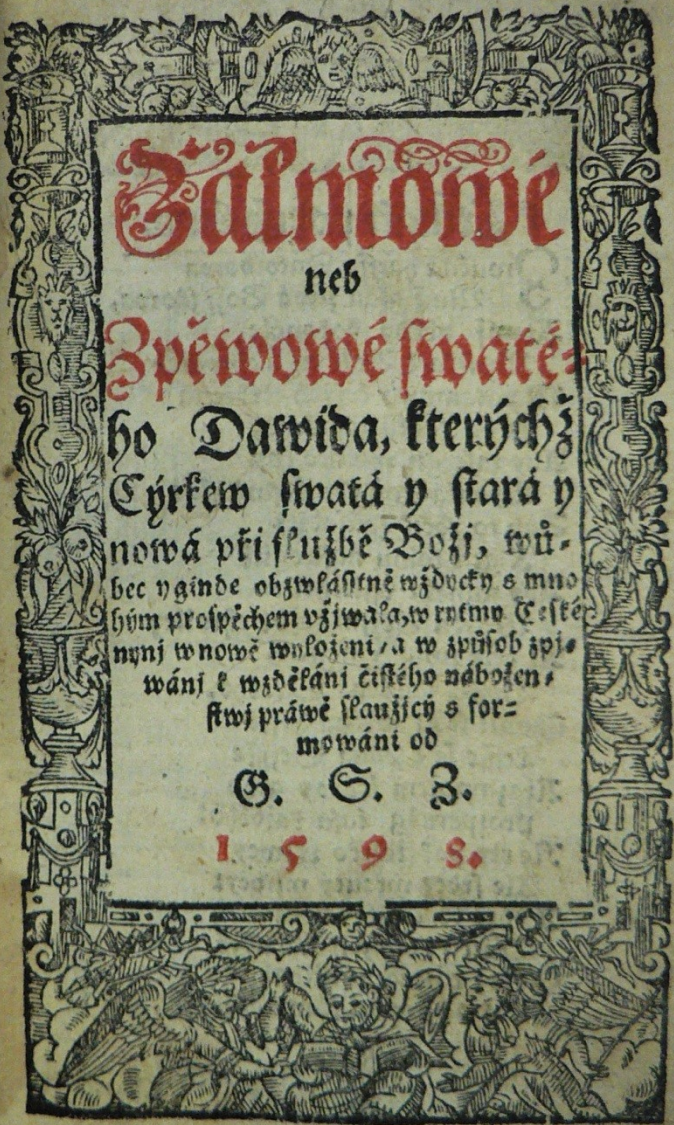 Žalmowé
neb
Zpěwowé ſwaté-
ho Dawida, kterýchž
Cýrkew ſwatá y ſtará y
nowá při ſlužbě Božj, wů-
bec yginde obzwláſſtně wždycky s mno
hým proſpěchem vžjwala, w rytmy Cżeské
nynj wnowě wyloženi, a w způſob zpj-
wánj k wzděláni čiſtého nábožen-
ſtwj práwě ſlaužjcý sfor-
mowáni od
G. S. Z.
1598.